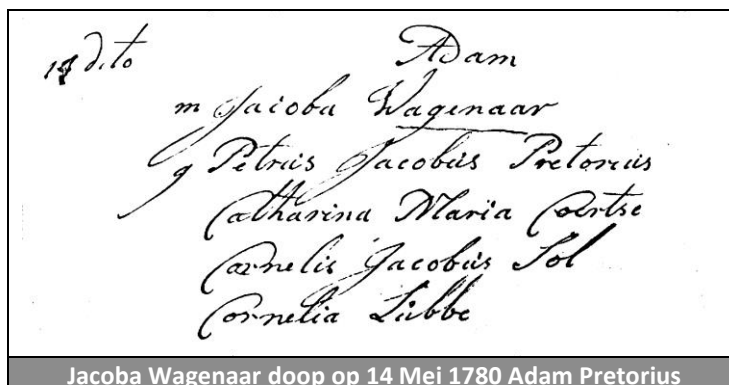 14 dito Adam
m Jacoba Wagenaar
g Petrus Jacobus Pretorius
Catharina Maria Coertse
Cornelis Jacobus Sol
Cornelia Lubbe
Jacoba Wagenaar doop op 14 Mei 1780 Adam Pretorius